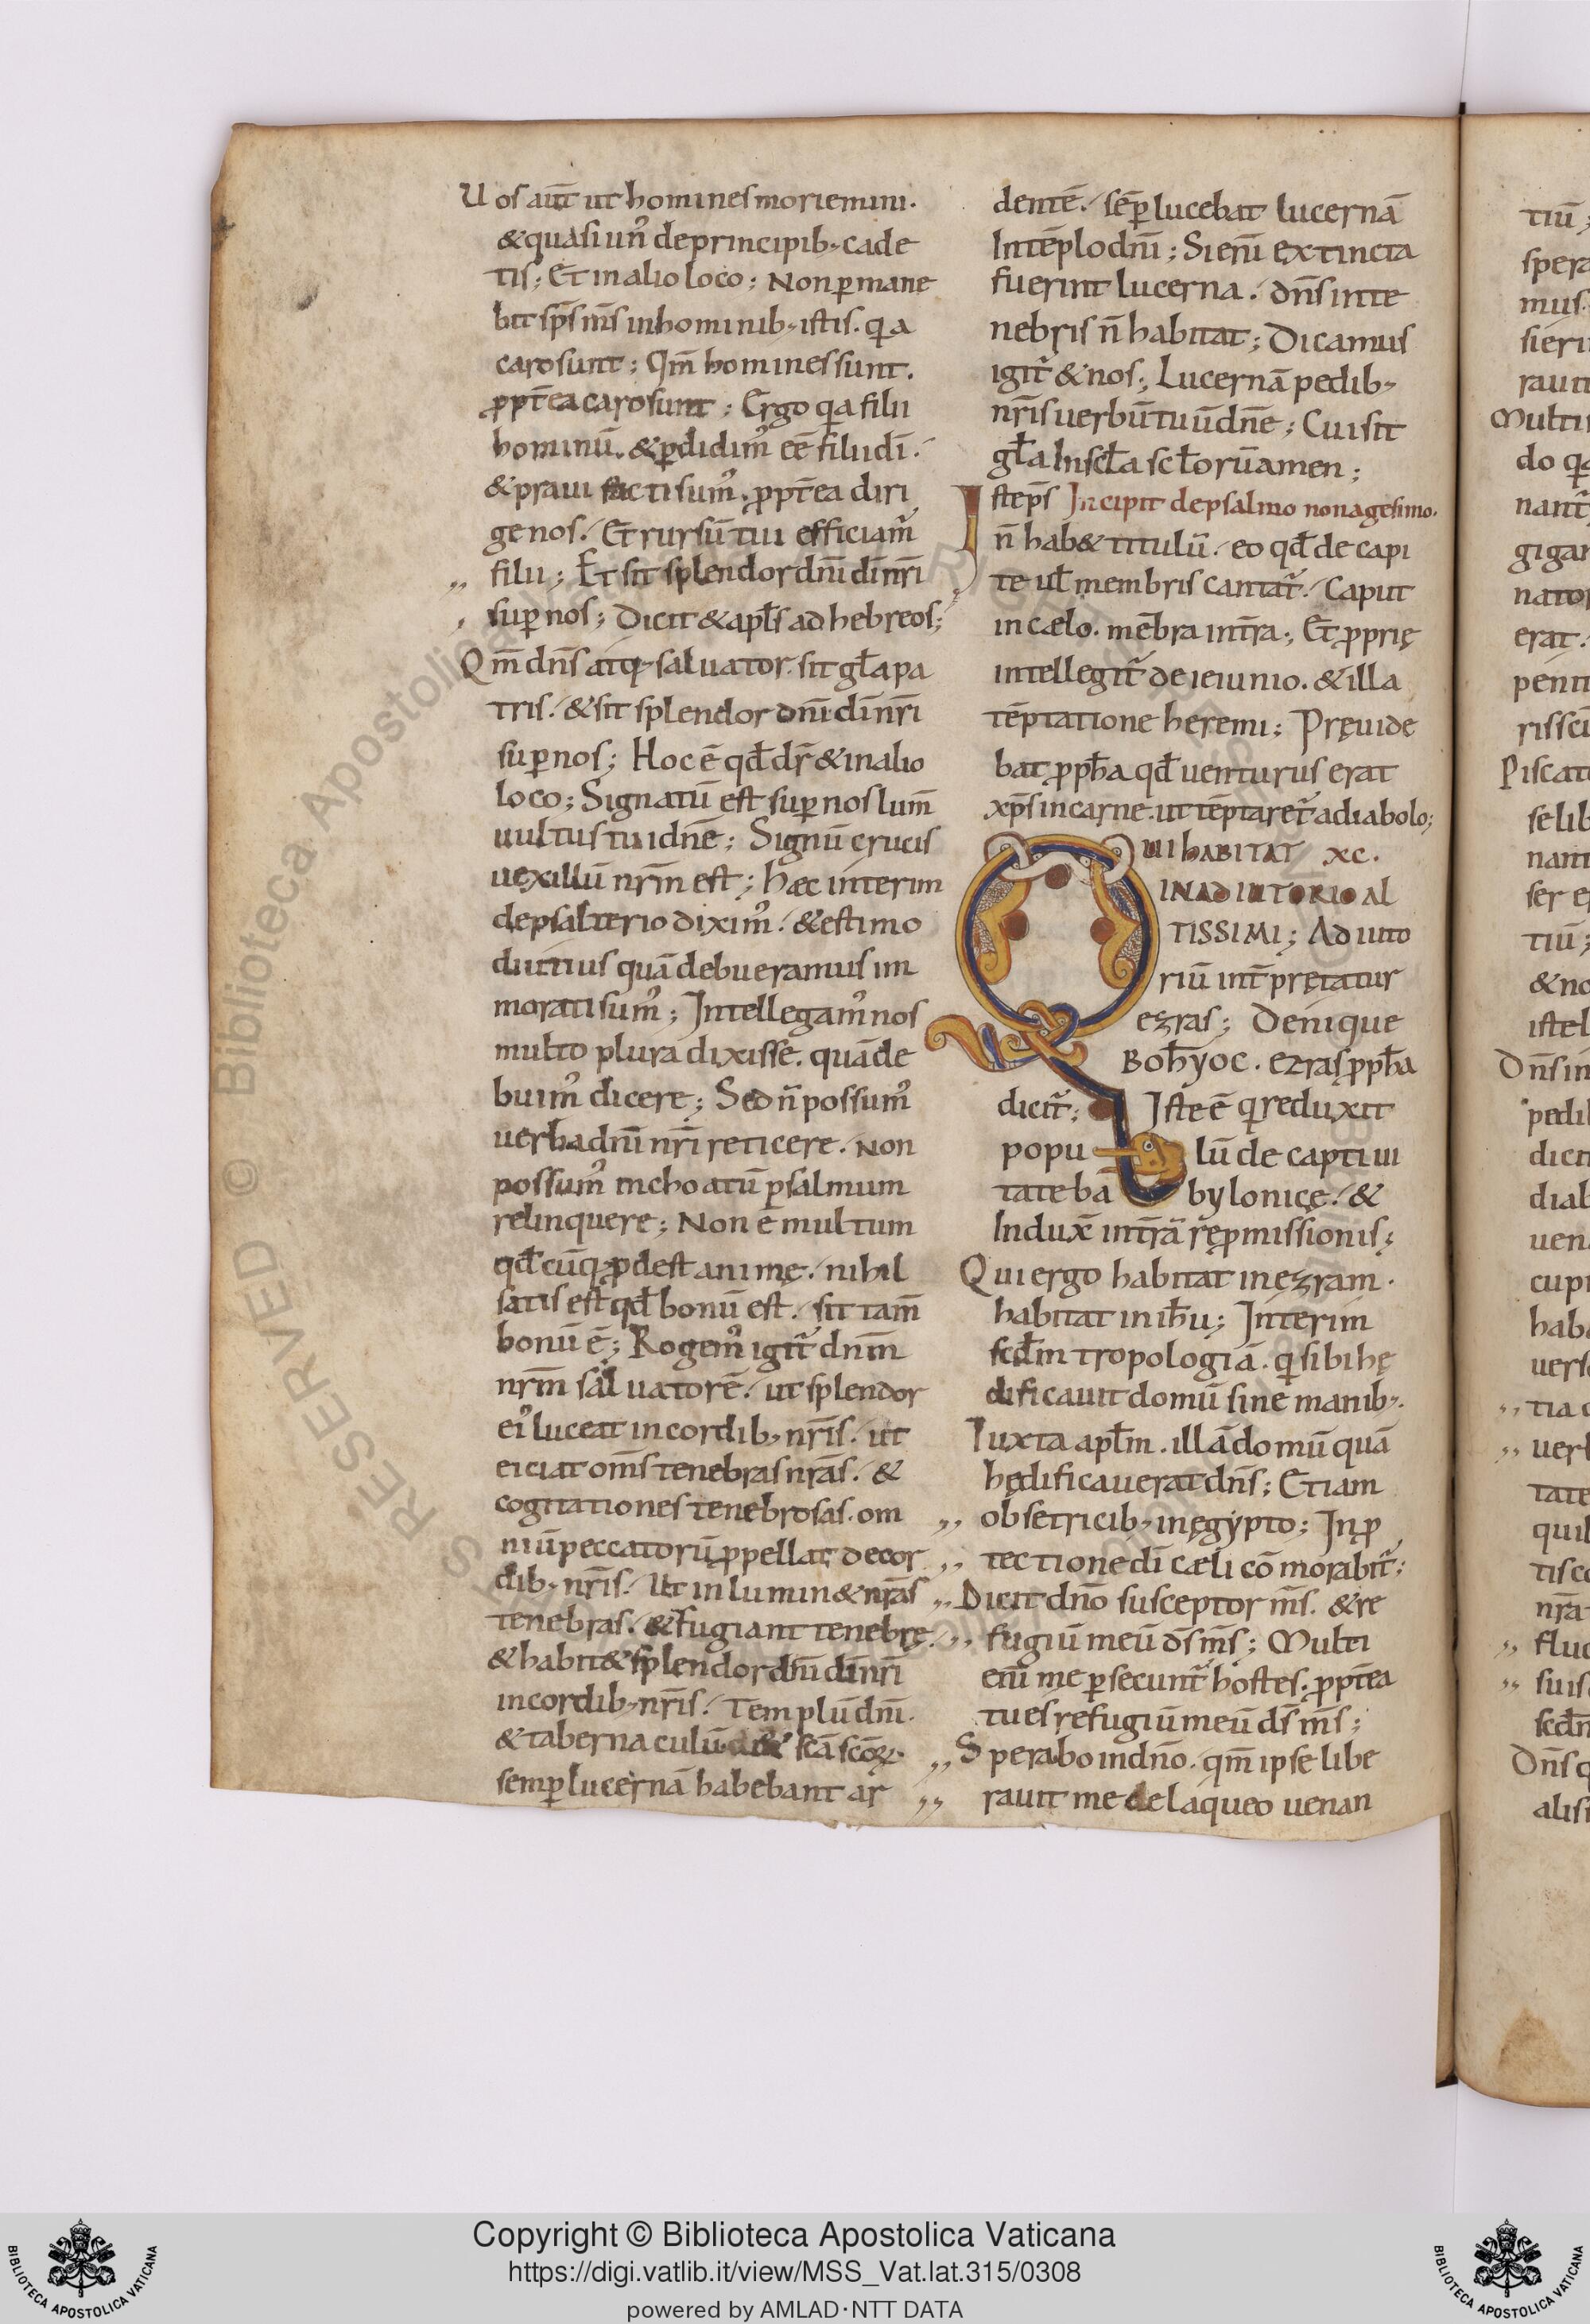 Uos aut̄ ut homines moriemini.
& quasi un᾽ de principib; cade
tis; Et in alio loco; Non ꝑmane
bit sp̄s m̄s in hominib; istis. q̄a
caro sunt; Qm̄ homines sunt.
ꝓpt̄ea caro sunt; Ergo q̄a filii
hominū. & ꝑdidim᾽ eē filii dī.
& praui facti sum᾽. ꝓpt̄ea diri
ge nos. Et rursū tui efficiam̄
filii; Et sit splendor dnī dī nrī
suꝑ nos; Dicit & apl̄s ad hebreos;
Qm̄ dn̄s atq; saluator sit gl̄a pa
tris. & sit splendor dnī dī nrī
suꝑ nos; Hoc ē qd̄ dr̄ & in alio
loco; Signatū est suꝑ nos lum̄
uultus tui dnē; Signū crucis
uexillū nrm̄ est; Hæc interim
de psalterio dixim᾽. & estimo
diutius quā debueramus im
morati sum᾽; Intellegam᾽ nos
multo plura dixisse. quā de
buim᾽ dicere; Sed n̄ possum᾽
uerba dnī nrī reticere. Non
possum᾽ inchoatū psalmum
relinquere; Non ē multum
qd̄cūq; ꝓdest animę. nihil
satis est qd̄ bonū est. sit tam̄
bonū ē; Rogem᾽ igit̄ dnm̄
nrm̄ saluatorē. ut splendor
ei᾽ luceat in cordib; nrīs. ut
eiciat om̄s tenebras nrās. &
cogitationes tenebrosas. om
niū peccatorū ꝓpellat de cor
dib; nrīs. Ut inlumin& nrās
tenebras. & fugiant tenebrę.
& habit& splendor dnī dī nrī
in cordib; nrīs. Templū dnī.
& tabernaculū scā scōꝝ.
semꝑ lucernā habebant ar
dentē. sēꝑ lucebat lucernā
In tēplo dnī; Si enī extincta
fuerint lucerna. dn̄s in te
nebris n̄ habitat; Dicamus
igit̄ & nos; Lucernā pedib;
nrīs uerbū tuū dnē; Cui sit
gl̄a In scl̄a scl̄orū amen;
Incipit de psalmo nonagesimo.
Iste ps̄
n̄ hab& titulū. eo qd̄ de capi
te ul̄ membris cantat̄. Caput
in cælo. mēbra int̄ra; Et ꝓprię
intellegit̄ de ieiunio. & illa
tēptatione heremi; Pręuide
bat ꝓph̄a qd̄ uenturus erat
xp̄s in carne. ut tēptaret̄ a diabolo;
QUI HABITAT XC.
IN ADIUTORIO AL
TISSIMI; Adiuto
riū int̄pretatur
ezras; Denique
Boh̄yoc. ezras ꝓph̄a
dicit̄; Iste ē q̄ reduxit
populū de captiui
tate babylonicę. &
Indux̄ int̄rā rēꝓmissionis;
Qui ergo habitat in ezram.
habitat in ih̄u; Interim
scd̄m tropologiā. q̄ sibi hę
dificauit domū sine manib;.
Iuxta apl̄m. illā domū quā
hędificauerat dn̄s; Etiam
obsetricib; in ęgypto; In ꝓ
tectione dī cæli cōmorabit̄;
Dicit dnō susceptor m̄s. & re
fugiū meū ds̄ m̄s; Multi
enī me ꝑsecunt̄ hostes. ꝓpt̄ea
tu es refugiū meū ds̄ m̄s;
Sperabo in dnō. qm̄ ipse libe
rauit me de laqueo uenan
Copyright © Biblioteca Apostolica Vaticana
https://digi.vatlib.it/view/MSS_Vat.lat.315/0308
powered by AMLAD·NTT DATA
BIBLIOTECA APOSTOLICA VATICANA
BIBLIOTECA APOSTOLICA VATICANA